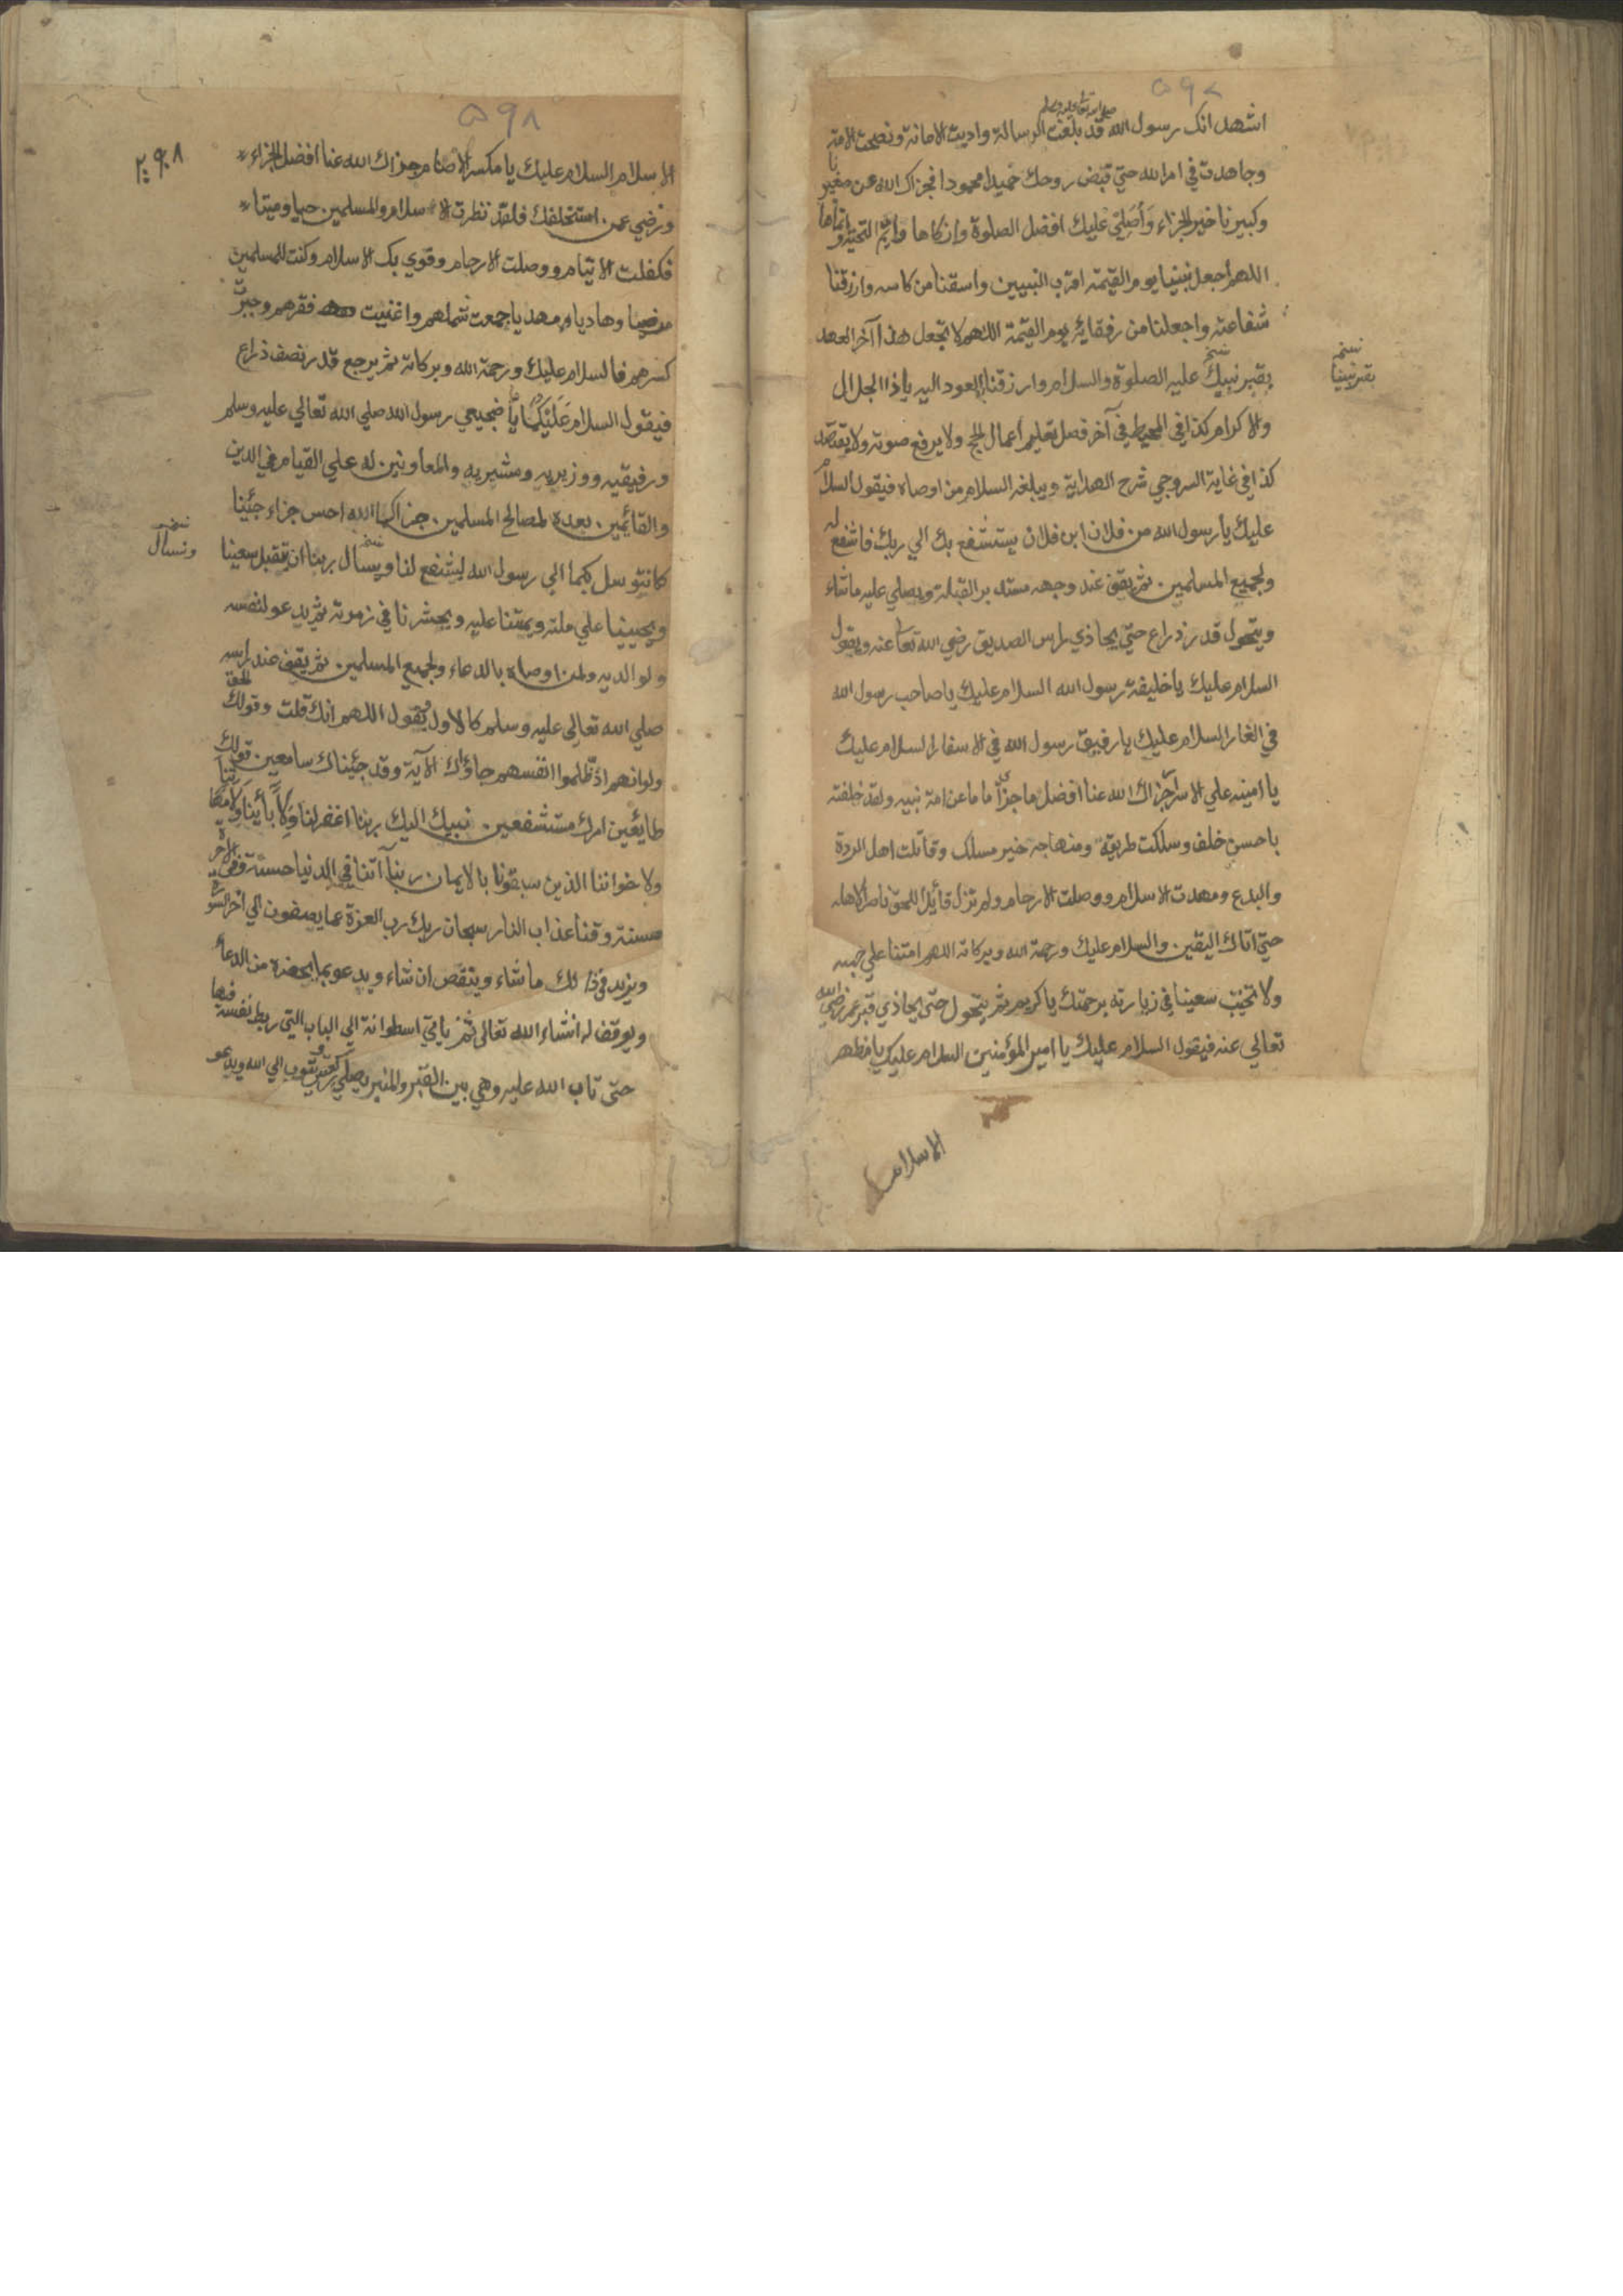 ۵۹۸
صلي الله تعالي عليه وسلم
اشهد انك رسول الله قد بلغت الرسالة واديت الامانة ونصحت الامة
وجاهدت في امر الله حتي قبض روحك حميدا محمودا فجزاك الله عن صغيرنا
وكبيرنا خير الجزاء وَأُصَلّي عليك افضل الصلوة وازكاها واتم التحية وانماها
اللهم اجعل نبينا يوم القيمة اقرب النبيين واسقنا من كاسه وارزقنا
شفاعته واجعلنا من رفقائه يوم القيمة اللهم لا تجعل هذا آخر العهد
نسخه
بقبر نبينا
بقبر نبيك عليه الصلوة والسلام وارزقنا العود اليه ياذا الجلال
والاكرام كذا في المحيط في آخر فصل تعليم اعمال الحج ولا يرفع صوته ولا يقتصد
كذا في غاية السروجي شرح الهداية ويبلغه السلام من اوصاه فيقول السلام
عليك يا رسول الله من فلان ابن فلان يستشفع بك الي ربك فاشفع له
ولجميع المسلمين ثم يقف عند وجهه مستدبر القبلة ويصلي عليه ما شاء
ويتحول قدر ذراع حتي يحاذي راس الصديق رضي الله تعا عنه ويقول
السلام عليك يا خليفة رسول الله السلام عليك يا صاحب رسول الله
في الغار السلام عليك يا رفيق رسول الله في الاسفار السلام عليك
يا امينه علي الاسرار جزاك الله عنا افضل ما جزي اماما عن امة نبيه ولقد خلفته
باحسن خلف وسلكت طريقه ومنهاجه خير مسلك وقاتلت اهل الردة
والبدع ومهدت الاسلام ووصلت الارحام ولم تزل قائلا للحق ناصرا لاهله
حتي اتاك اليقين والسلام عليك ورحمة الله وبركاته اللهم امتنا علي حبه
ولا تخيب سعينا في زيارته برحمتك يا كريم ثم يتحول حتي يحاذي قبر عمر رضي الله
تعالي عنه فيقول السلام عليك يا امير المؤمنين السلام عليك يا مظهر
الاسلام
۵۹۸
الاسلام السلام عليك يا مكسر الاصنام جزاك الله عنا افضل الجزاء
ورضي عمن استخلفك فلقد نظرت الاسلام والمسلمين حيا وميتا
فكفلت الايتام ووصلت الارحام وقوي بك الاسلام وكنت للمسلمين
مرضيا وهاديا ومهديا جمعت شملهم واغنيت فقرهم وجبرت
كسرهم فالسلام عليك ورحمة الله وبركاته ثم يرجع قدر نصف ذراع
فيقول السلام عَلَيْكُمَا يا ضجيعي رسول الله صلي الله تعالي عليه وسلم
ورفيقيه ووزيريه ومشيريه والمعاونين له علي القيام في الدين
والقائمين بعده لمصالح المسلمين جزاكما الله احسن جزاء جئينا
نسخه
ونسال
كما نتوسل بكما الي رسول الله ليشفع لنا ويسال ربنا ان يتقبل سعينا
ويحيينا علي ملته ويمتنا عليه ويحشرنا في زمرته ثم يدعو لنفسه
ولوالديه ولمن اوصاه بالدعاء ولجميع المسلمين ثم يقف عند راسه
صلي الله تعالي عليه وسلم كالاول يقول اللهم انك قلت وقولك الحق
ولو انهم اذ ظلموا انفسهم جاؤك الآية وقد جئناك سامعين قولك
طايعين امرك مستشفعين نبيك اليك ربنا اغفر لنا ولآبائنا ولامهاتنا
ولاخواننا الذين سبقونا بالايمان ربنا آتنا في الدنيا حسنة وفي الاخرة
حسنة وقنا عذاب النار سبحان ربك رب العزة عما يصفون الي اخر السورة
ويزيد في ذالك ما شاء وينقص ان شاء ويدعو بما يحضره من الدعاء
ويوفق له انشاء الله تعالي ثم ياتي اسطوانة ابي البابة التي ربط نفسه فيها
حتي تاب الله عليه وهي بين القبر والمنبر ويصلي ركعتين ويتوب الي الله ويدعو